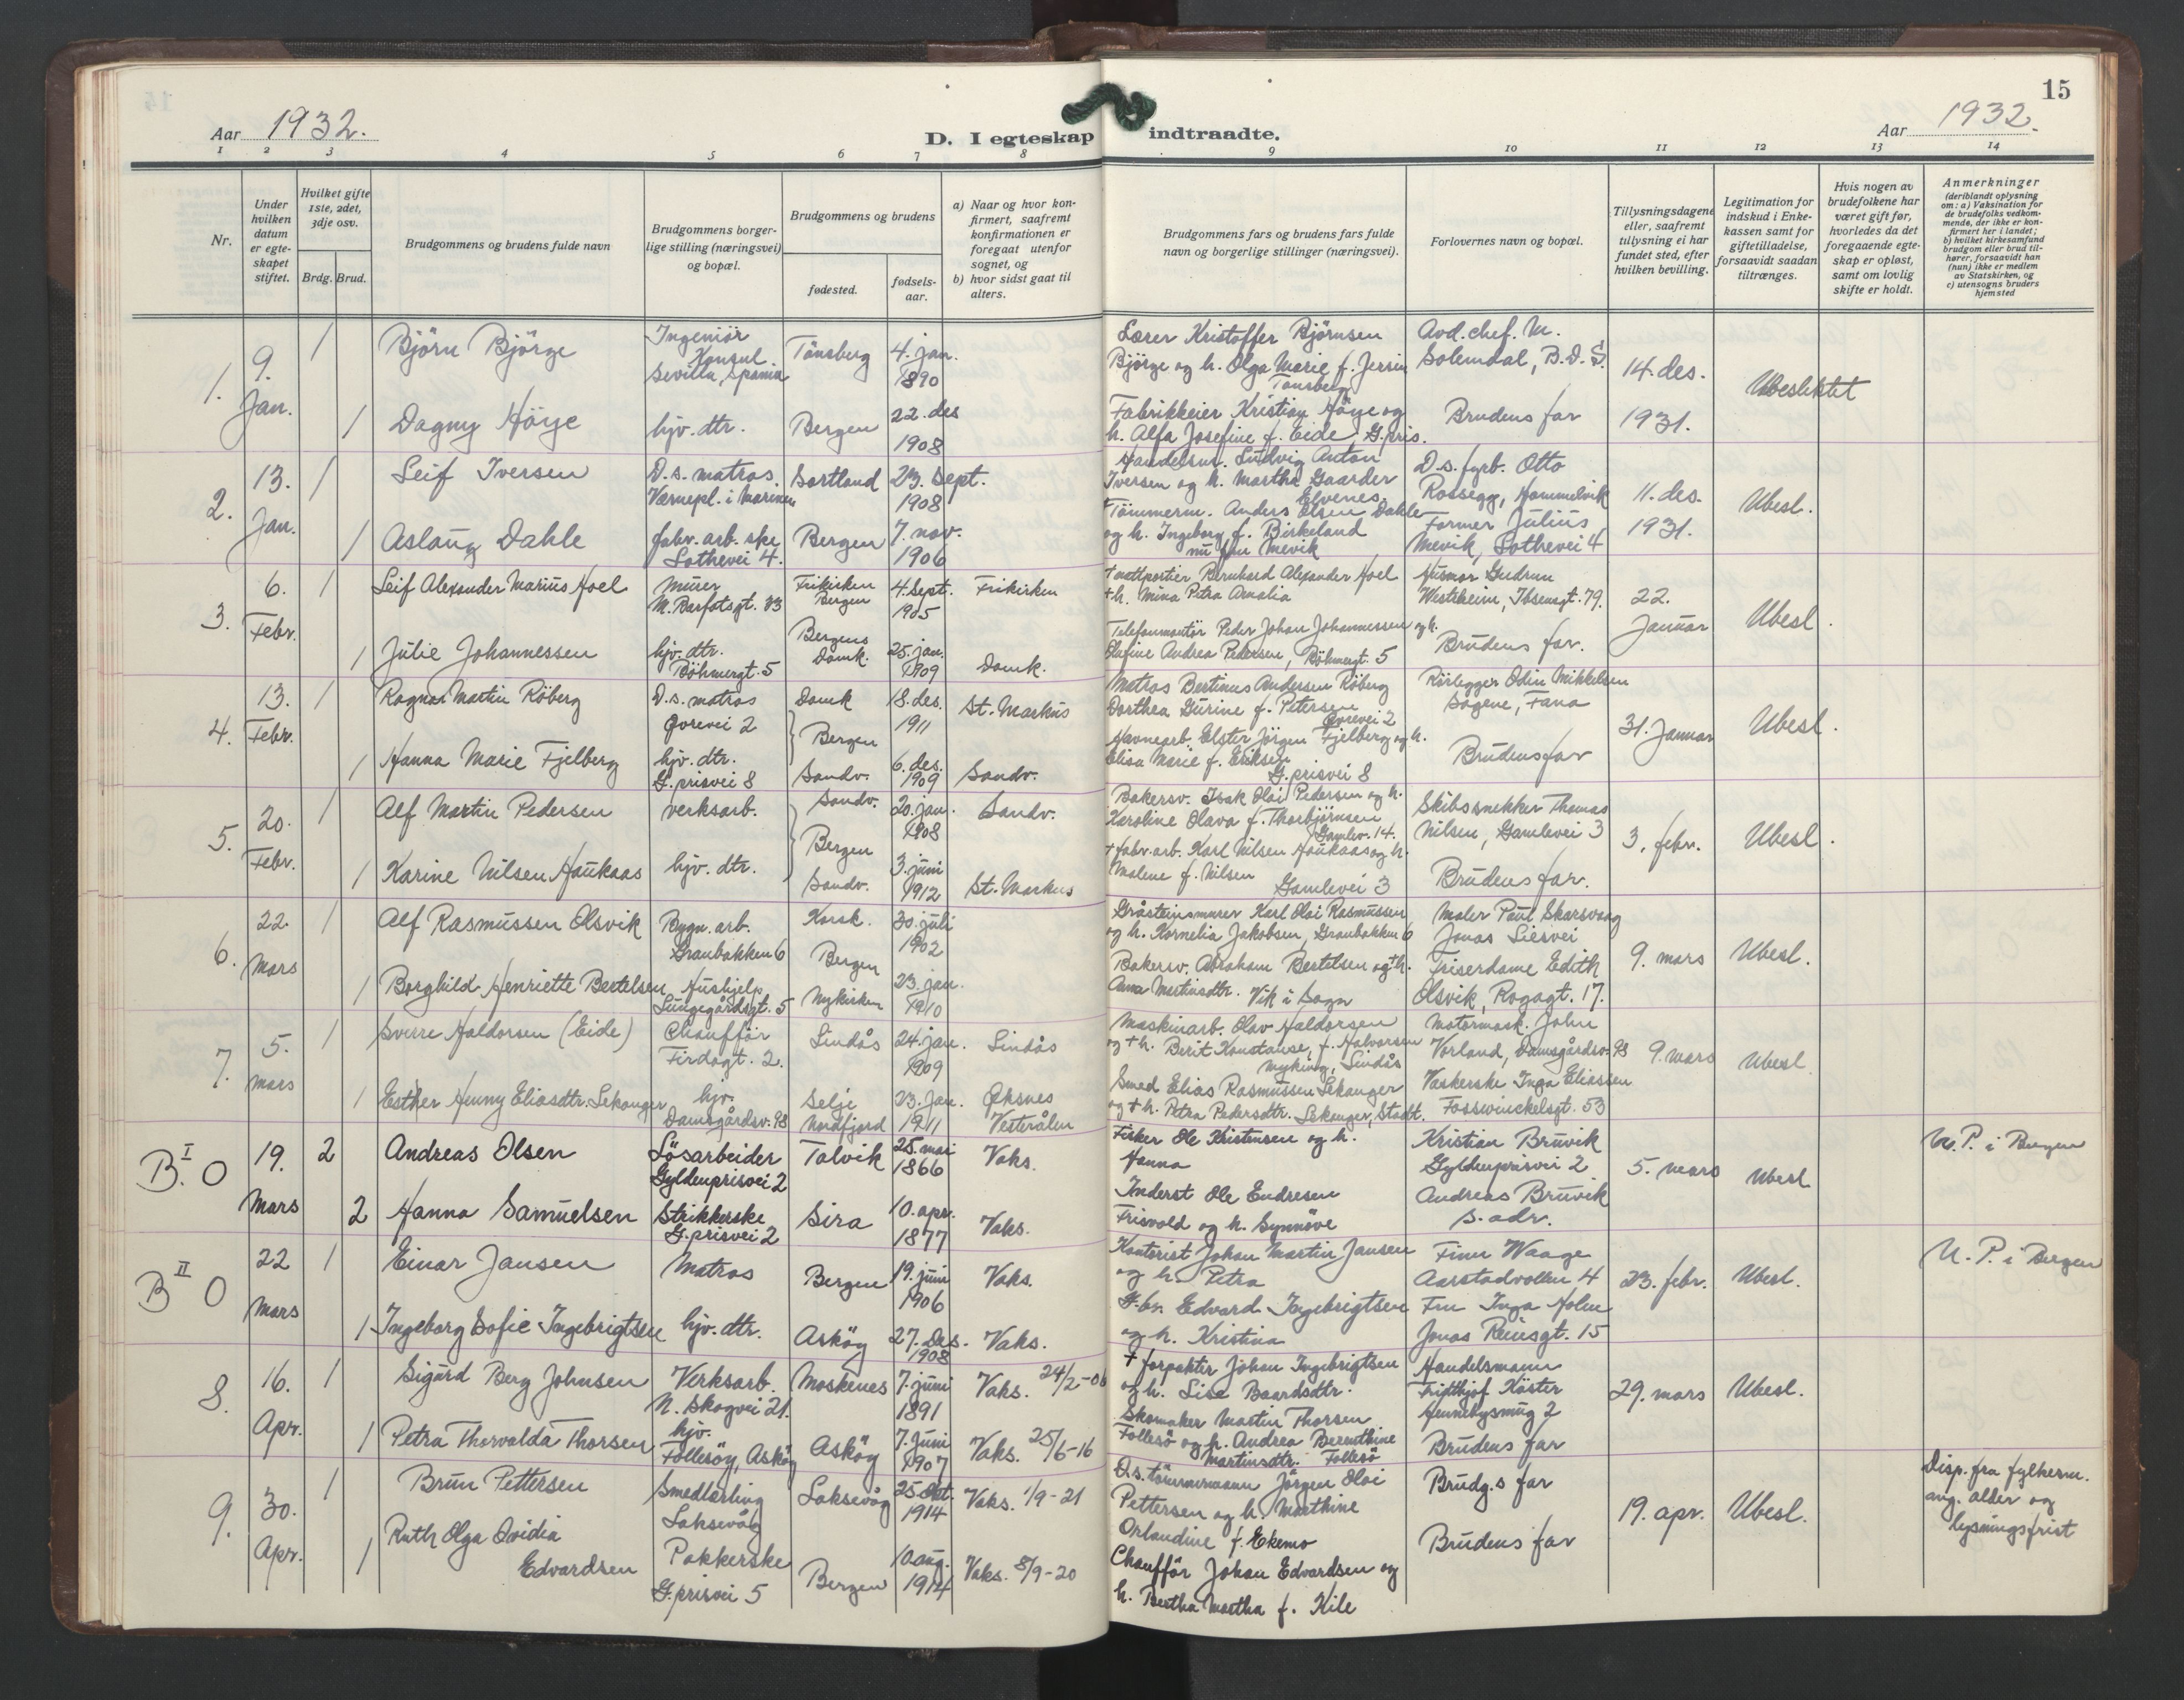 15
Aar 1932.
D. I egteskap indtraadte.
Aar 1932.
1 2 3 4 5 6 7 8 9 10 11 12 13 14
Nr.
Under hvilken datum er egte-skapet stiftet.
Hvilket gifte 1ste, 2det, 3dje osv.
Brdg. Brud.
Brudgommens og brudens fulde navn
Brudgommens borger-lige stilling (næringsvei) og bopæl.
Brudgommens og brudens
fødested.
fødsels-aar.
a) Naar og hvor kon-firmert, saafremt konfirmationen er foregaat utenfor sognet, og
b) hvor sidst gaat til alters.
Brudgommens fars og brudens fars fulde navn og borgerlige stillinger (næringsvei).
Forlovernes navn og bopæl.
Tillysningsdagene eller, saafremt tillysning ei har fundet sted, efter hvilken bevilling.
Legitimation for indskud i Enke-kassen samt for giftetilladelse, forsaavidt saadan tiltrænges.
Hvis nogen av brudefolkene har været gift før, hvorledes da det foregaaende egte-skap er opløst, samt om lovlig skifte er holdt.
Anmerkninger
(deriblandt oplysning om: a) Vaksination for de brudefolks vedkom-mende, der ikke er kon-firmert her i landet; b) hvilket kirkesamfund brudgom eller brud til-hører, forsaavidt han (hun) ikke er medlem av Statskirken, og c) utensogns bruders hjemsted
1. 9. Jan. 1 Björn Bjørge Ingeniör Konsul Sevilla, Spania Tönsberg 4. jan. 1890 Lærer Kristoffer Björnsen Bjørge og h. Olga Marie f. Jersin Tönsberg Avd. chef. M. Solemdal, B.D.S. 14. des. 1931. Ubeslektet
1 Dagny Höye hjv. dtr. Bergen 22. des 1908 Fabrikkeier Kristian Höye og h. Alfa Josefine f. Eide, G.pris. Brudens far
2. 13. Jan. 1 Leif Iversen D.s. matros. Vernepl. i Marinen Sortland 23. Sept. 1908 Handelsm. Ludvig Anton Iversen og h. Martha Gaarder Elvenes. D.s. fyrb. Otto Rossegg, Hommelvik 11. des. 1931. Ubesl.
1 Aslaug Dahle fabr. arb. ske Lothevei 4. Bergen 7. nov. 1906 Tömmerm. Anders Olsen Dahle og h. Ingeborg f. Birkeland nu fru Mevik Former Julius Mevik, Lothevei 4
3. 6. Febr. 1 Leif Alexander Marius Hoel Murer M. Barfotsgt. 23 Frikirken Bergen 4. Sept. 1905 Frikirken + nattportier Bernhard Alexander Hoel + h. Mina Petra Amalia Husmor Gudrun Westrheim, Ibsensgt. 79. 22. Januar Ubesl.
1 Julie Johannessen hjv. dtr. Böhmergt. 5 Bergens Domk. 25. jan. 1909 Domk. Telefonmontör Peder Johan Johannessen og h. Olufine Andrea Pedersen, Böhmergt. 5 Brudens far.
4. 13. Febr. 1 Ragnar Martin Röberg D.s. matros Øvrevei 2 Domk Bergen 18. des. 1911 St. Markus Matros Bertinus Andersen Röberg Dorthea Gurine f. Petersen Øvrevei 2 Rörlegger Odin Mikkelsen Sogene, Fana 31. Januar Ubesl.
1 Hanna Marie Fjelberg hjv. dtr. G.prisvei 8 Sandv. 6. des. 1909 Sandv. Havnearb. Elster Jörgen Fjelberg og h. Elisa Marie f. Eriksen G.prisvei 8 Brudens far
5. 20. Febr. 1 Alf Martin Pedersen verksarb. Sandv. Bergen 20. jan. 1908 Sandv. Bakersv. Isak Olai Pedersen og h. Karoline Olava f. Thorbjörnsen Gamlev. 14. Skibssnekker Thomas Nilsen, Gamlevei 3 3. febr. Ubesl.
1 Karine Nilsen Haukaas hjv. dtr. Sandv. 3. juni 1912 St. Markus + fabr. arb. Karl Nilsen Haukaas og h. Malene f. Nilsen Gamlevei 3 Brudens far.
6. 22. Mars 1 Alf Rasmussen Olsvik Bygn. arb. Graubakken 6 Korsk. Bergen 30. juli 1902 Gråsteinsmurer Karl Olai Rasmussen og h. Kornelia Jakobsen, Graubakken 6 Maler Paul Skarsvaag Jonas Liesvei 9. mars Ubesl.
1 Borghild Henriette Bertelsen Hushjelp Lungegårdsgt. 5 Nykirken 23. jan. 1910 Bakersv. Abraham Bertelsen og + h. Anna Martinsdtr. Vik i Sogn Friserdame Edith Olsvik, Rogagt. 17.
7. 5. Mars 1 Sverre Haldorsen (Eide) Chafför Firdagt. 2. Lindås 24. jan. 1909 Lindås Maskinarb. Olav Haldorsen og + h. Berit Konstanse, f. Halvorsen Myking, Lindås Motormask. John Vorland, Damsgårdsv. 98 9. mars Ubesl.
1 Esther Henny Eliasdtr. Lekanger hjv. Damsgårdsv. 98 Selje Nordfjord 23. Jan. 1911 Øksnes Vesterålen Smed Elias Rasmussen Lekanger og + h. Petra Pedersdtr. Lekanger, Stadt. Vaskerske Inga Eliassen Fosswinckelsgt. 53
B.I 0 19. Mars 2 Andreas Olsen Lösarbeider Gyldenprisvei 2 Talvik 25. mai 1866 Vaks. Fisker Ole Kristensen og h. Hanna Kristian Bruvik Gyldenprisvei 2 5. mars Ubesl M.P. i Bergen
2 Hanna Samuelsen Strikkerske G.prisvei 2 Sira 10. apr. 1877 Vaks. Inderst Ole Endresen Frisvold og h. Synnöve Andreas Bruvik s. adr.
B II 0 22 Mars 1 Einar Jansen Matros Bergen 19. juni 1906 Vaks. Kontorist Johan Martin Jansen og h. Petra Finn Waage Aarstadvollen 4 23. febr. Ubesl. M.P. i Bergen
1 Ingeborg Sofie Ingebrigtsen hjv. dtr. Asköy 27. Des. 1908 Vaks. G.br. Edvard Ingebrigtsen og h. Kristina Fru Inga Holm Jonas Reinsgt. 15
8. 16. Apr. 1 Sigurd Berg Johnsen Verksarb. N. Skogvei 21. Moskenes 7. juni 1891 Vaks. 24/2-06 + forpakter Johan Ingebrigtsen og h. Lise Baardsdtr. Handelsmann Fritthjof Köster Hennebysmug 2 29. mars Ubesl.
1 Petra Thorvalda Thorsen hjv. Follesöy, Asköy Asköy 7. Juni 1907 Vaks. 25/6-16 Skomaker Martin Thorsen Follesö og h. Andrea Bernthine Martinsdtr. Follesö Brudens far
9. 30. Apr. 1 Brun Pettersen Smedlærling Laksevåg Laksevåg 25. Okt. 1914 Vaks. 1/9-21 D.s. tömmermann Jörgen Olai Pettersen og h. Marthine Orlandine f. Ekemo Brudg.s far 19. apr. Ubesl. Disp. fra fylkesm. ang. alder og lysningsfrist
1 Ruth Olga Ovidia Edvardsen Pakkerske G.prisvei 5 Bergen 10 aug. 1914 Vaks. 8/9-20 Chafför Johan Edvardsen og h. Bertha Martha f. Kile Brudens far